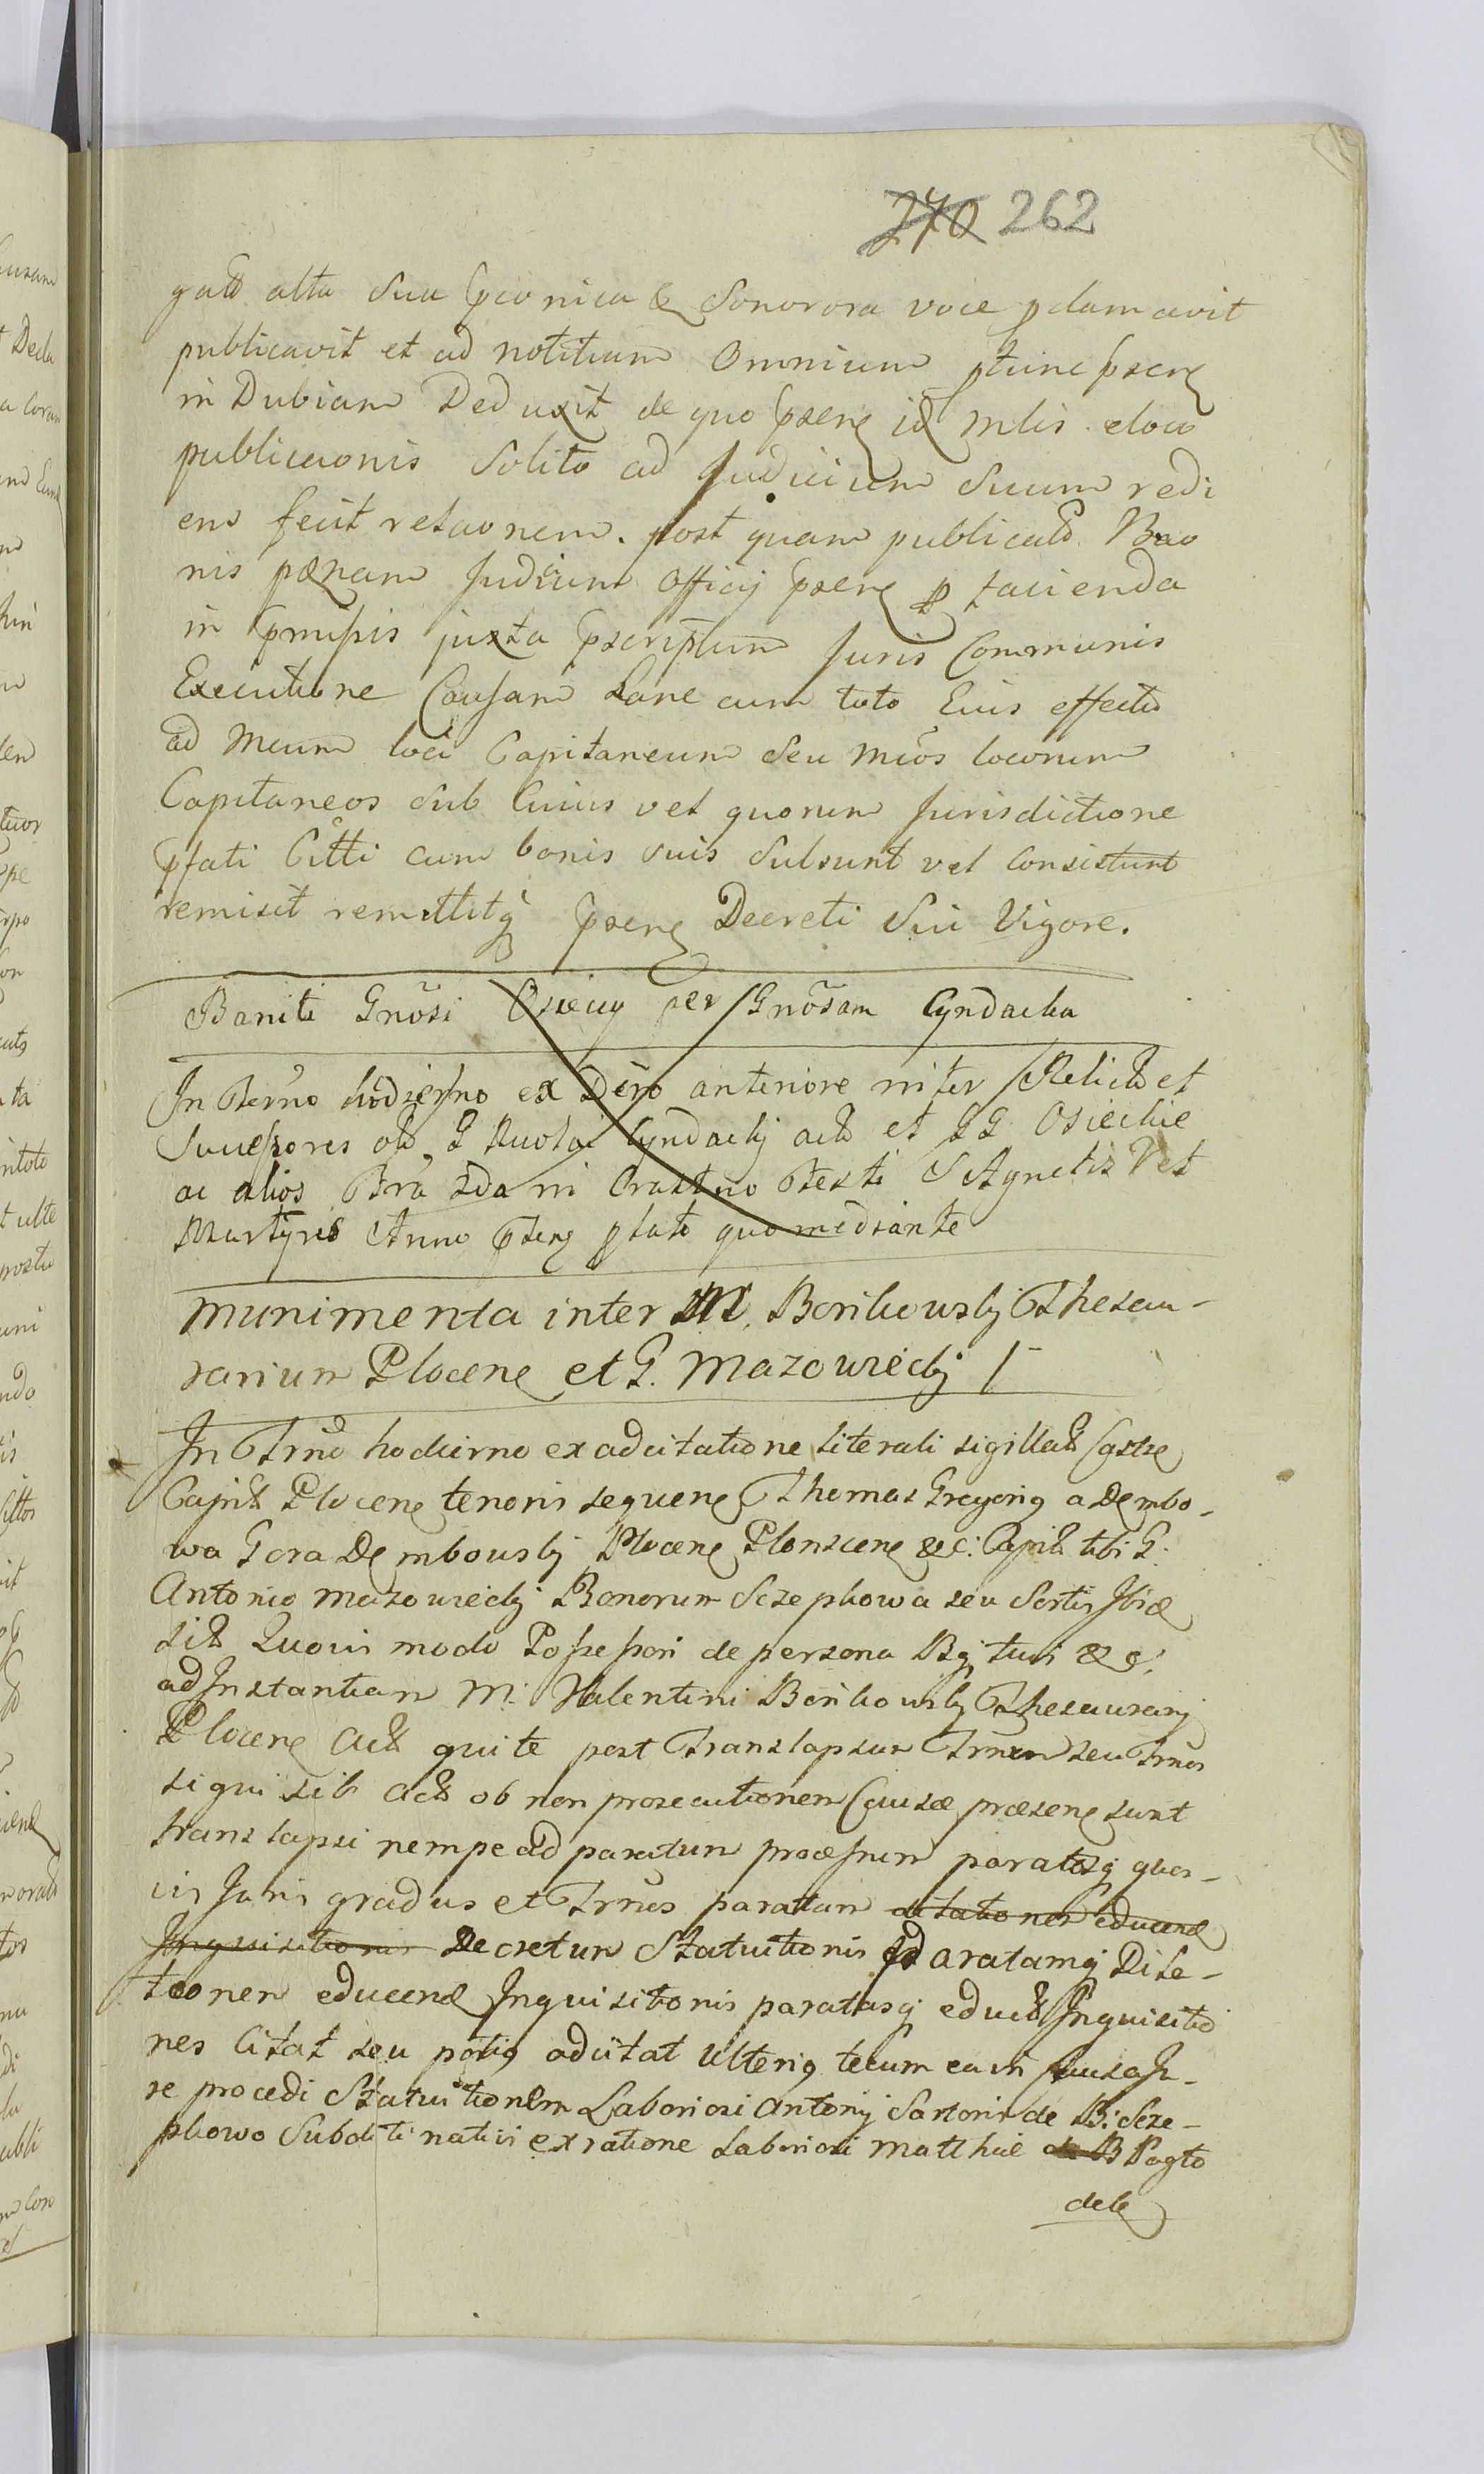 270 262
gatd alta sua conica & Sonorora voce pclamavit
publicavit et ad notitiam Omnium ptune psene
in Dubiam Deduxit de quo psene id Mlis eloco
publicaonis Solito ad Judicium Suum redi
ens fecit relaonem. post quam publicatd Bao
nis pænam Judicium Officij psene p facienda
in pmissis juxta pscriptum Juris Communis
Executione Causam Sane cum toto Eius effectu
ad Meum loci Capitaneum seu Mcos locorum
Capitaneos Sub Cuius vel quorum Jurisdictione
pfati Citti cum bonis suis Subsunt vel Consistunt
remisit remittitq psene Decreti Sui Vigore.
Baniti Gnosi Osiecij per Gnosam Cyndacka
In Termo hodierno ex Dcro anteriore inter Relictd et
Successores old G Cyndackj actd et GG Osieckie
ac alios fra 2da in Crastino Festi S Agnetis Vet
Martyris Anno pteng plato quo mediante
Munimenta inter M. Borikowskj Thesau-
rarium Plocene et G. Mazowieckj
In Trno hodierno ex adcitatione literali sigillatd Castre
Capitd Plocene tenoris sequene Thomas Gregorig a Dembo-
wa Gora Dembowskj Plocene Plonscene &c: Capitd tibi G:
Antonio Mazowieckj Bonorum Szczepkowa seu Sortis Ibid
sitd Quovis modo Possessori de persona Bq tuis &c:
ad Instantiam M: Valentini Borikowskj Thesaurarij
Plocene Actd qui te post Translapsum Trnum seu Trnos
si qui sib actd ob non prosecutionem Causæ præsene sunt
translapsi nempe ad paratum processum paratosq quos-
vis Juris gradus et Trnos paratum citationes educend
Inquisitionis Decretum Statuitionis paratamq Dila-
tionem educend Inquisitionis paratasq eductd Inquisitio
nes Citat seu potig adcitat Ulterig tecum ea in Causa Ju-
re procedi Statuitionem Laboriosi Antonij Sartoris de B: Szcze-
pkowo Subditi nativi ex ratione Laboriosi Matthiæ de B Pagto
dele